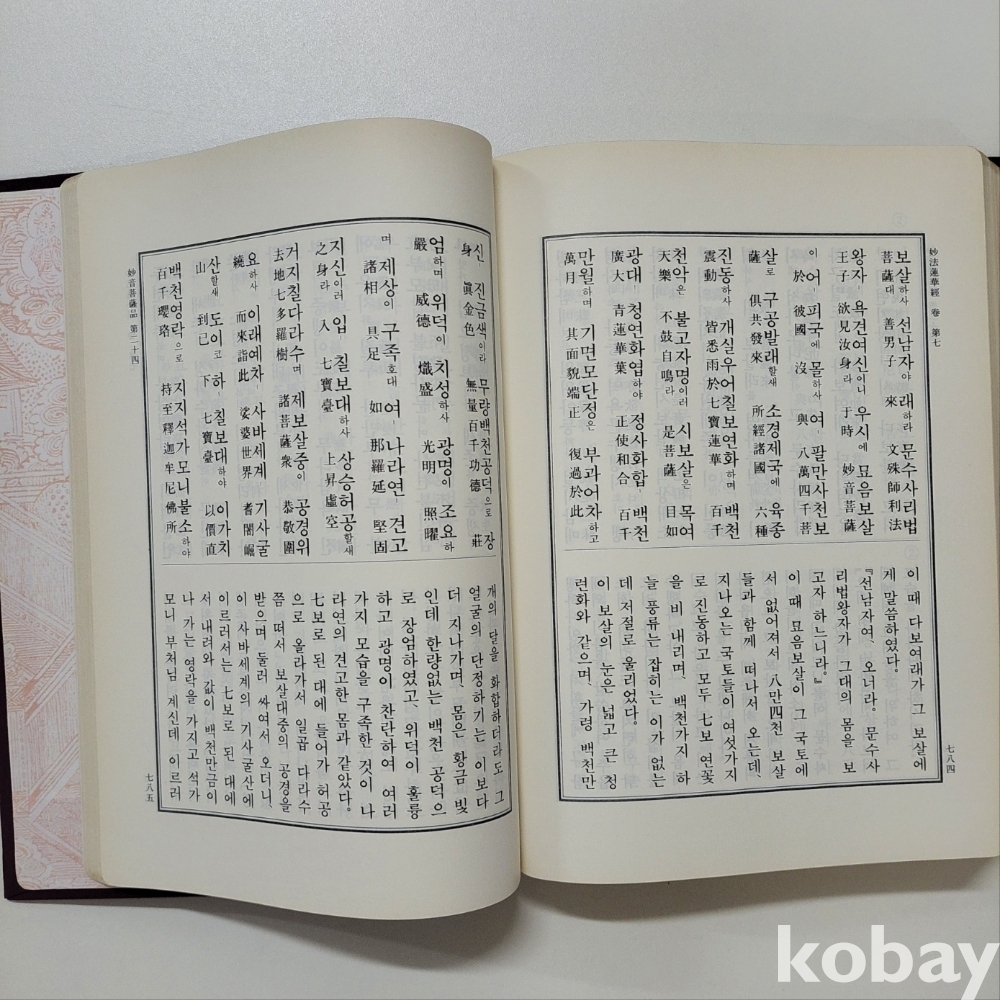 妙法蓮華經 卷 第七
보살하사 선남자야 래하라 문수사리법
菩薩대 善男子 來 文殊師利法
왕자ㅣ 욕견여신이니 우시에 묘음보살
王子ㅣ 欲見汝身라 于時 妙音菩薩
이 어ㅣ피국에 몰하사 여ㅣ팔만사천보
於彼國 沒 與 八萬四千菩
살로 구공발래할새 소경제국에 육종
薩 俱共發來 所經諸國 六種
진동하사 개실우어칠보연화하며 백천
震動 皆悉雨於七寶蓮華 百千
천악은 불고자명이러 시보살은 목여
天樂 不鼓自鳴라 是菩薩 目如
광대ㅣ 청연화엽하야 정사화합ㅣ 백천
廣大 青蓮華葉 正使和合 百千
만월하며 기면모단정은 부과어차하고
萬月 其面貌端正 復過於此
이때 다보여래가 그 보살에
게 말씀하였다.
『선남자여, 오너라. 문수사
리법왕자가 그대의 몸을 보
고자 하느니라.』
이때 묘음보살이 그 국토에
서 없어져서 八만四천 보살
들과 함께 떠나서 오는데,
지나오는 국토들이 여섯가지
로 진동하고 모두 七보 연꽃
을 비 내리며, 백천가지 하
늘 풍류는 잡히는 이가 없는
데 저절로 울리었다.
이 보살의 눈은 넓고 큰 청
련화와 같으며, 가령 백천만
七八四
신ㅣ 진금색이라 무량백천공덕으로 장
身 眞金色 無量百千功德 莊
엄하며 위덕이 치성하사 광명이 조요하
嚴 威德 熾盛 光明 照曜
며 제상이 구족호대 여ㅣ나라연ㅣ견고
諸相 具足 如 那羅延 堅固
지신이러 입ㅣ칠보대하사 상승허공할새
之身라 入 七寶臺 上昇虛空
거지칠다라수며 제보살중이 공경위
去地七多羅樹 諸菩薩衆 恭敬圍
요하사 이래예차ㅣ사바세계 기사굴
繞 而來詣此 娑婆世界 耆闍崛
산할새 도이코 하ㅣ칠보대하야 이가치
山 到已 下 七寶臺 以價直
백천영락으로 지지석가모니불소하야
百千瓔珞 持至釋迦牟尼佛所
개의 달을 화합하더라도 그
얼굴의 단정하기는 이보다
더 지나가며, 몸은 황금 빛
인데 한량없는 백천 공덕으
로 장엄하였고, 위덕이 훌륭
하고 광명이 찬란하여 여러
가지 모습을 구족한 것이 나
라연의 견고한 몸과 같았다.
七보로 된 대에 들어가 허공
으로 올라가서 일곱 다라수
쯤 떠서 보살대중의 공경을
받으며 둘러 싸여서 오더니,
이 사바세계의 기사굴산에
이르러서는 七보로 된 대에
서 내려와 값이 백천만금이
나 가는 영락을 가지고 석가
모니 부처님 계신데 이르러
妙音菩薩品 第二十四
七八五
kobay